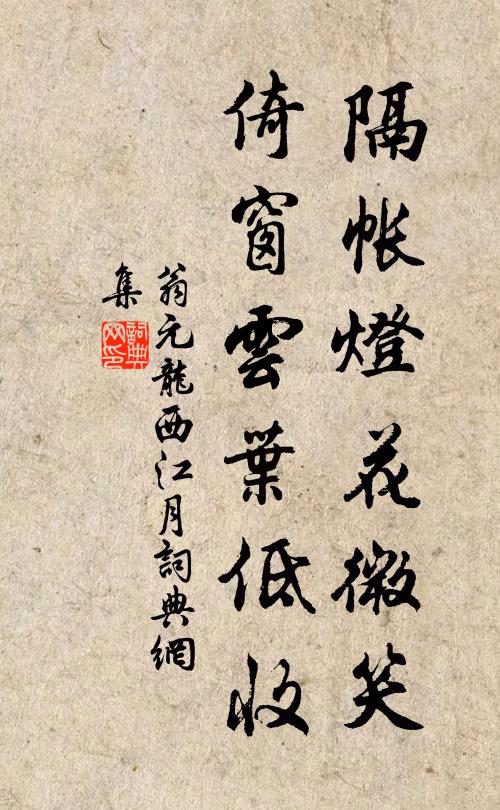 隔帐燈花微笑
倚窗雲葉低收
翁元龍西江月詞典網
集
詞典網印